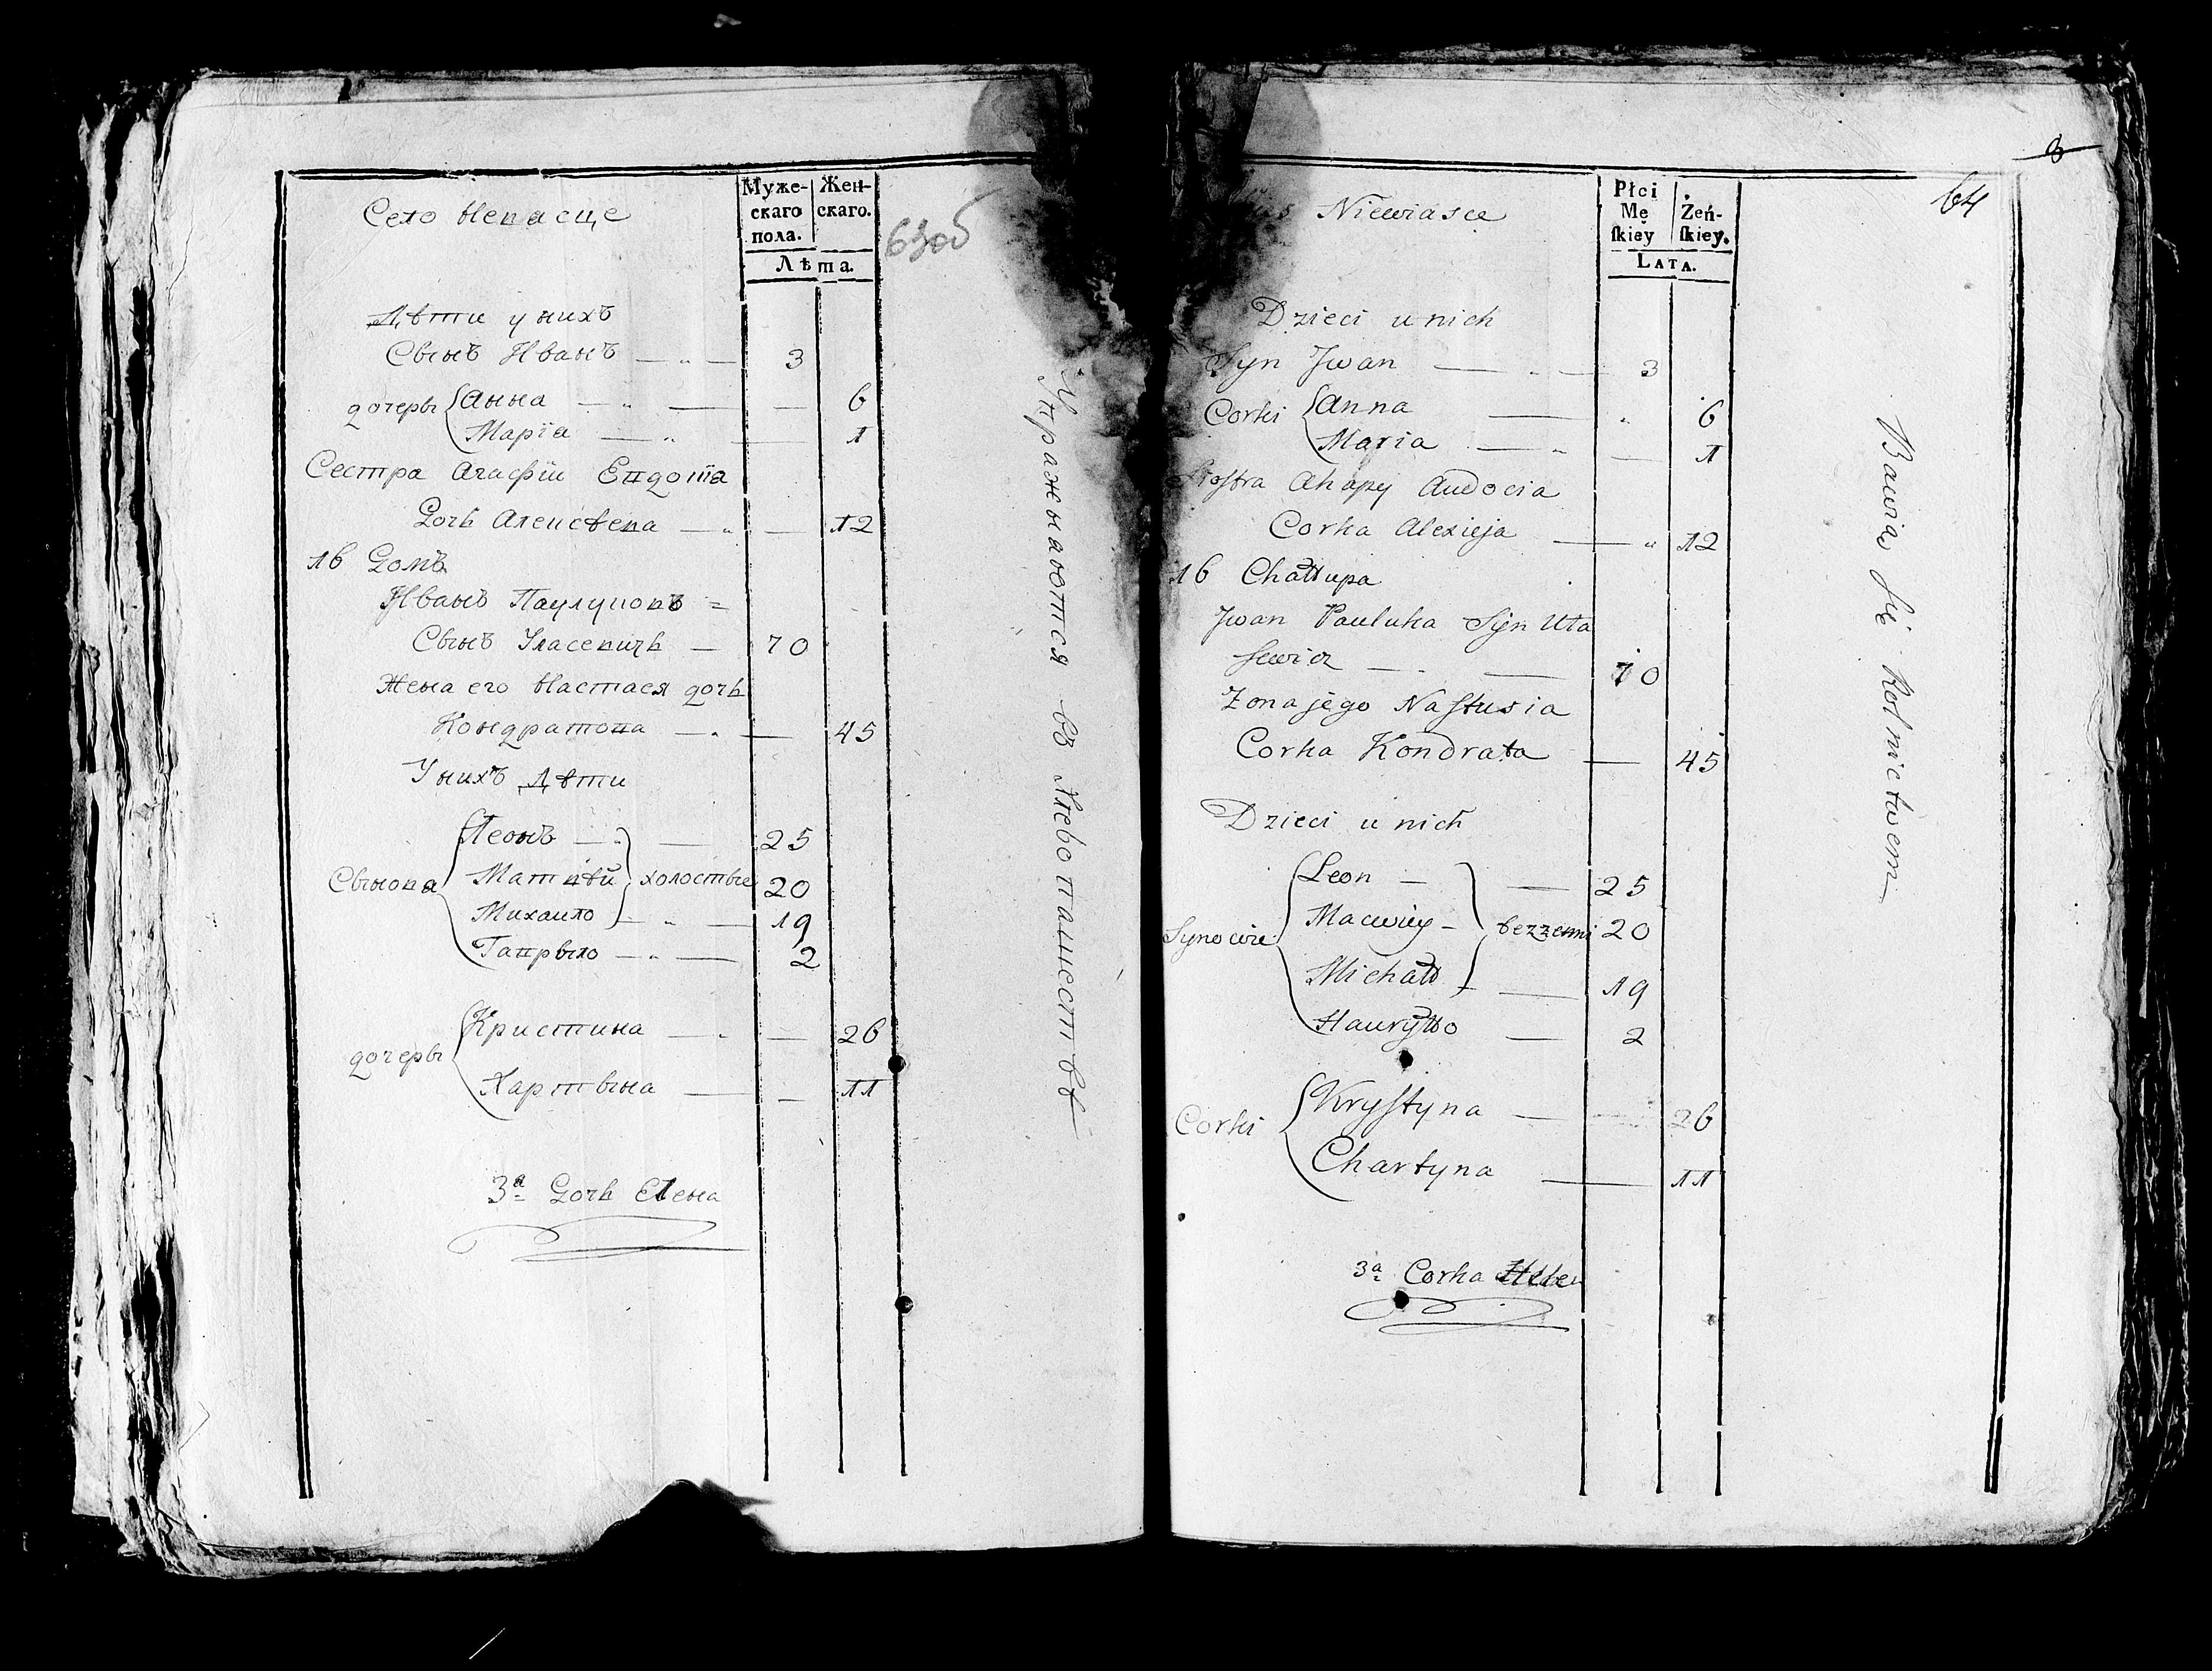 Село Невасце
Муже-
скаго
пола.
Жен-
скаго.
Лѣта.
63об
Дѣти у нихъ
Сынъ Иванъ — „ — 3
дочеры { Анна — „ — — 6
Марїа — „ — 1
Сестра Агафїи Евдотїа
Дочь Алеисѣева — „ — 12
16 Домъ
Иванъ Паулуковъ =
Сынъ Уласевичь — 70
Жена его Настася дочь
Кондратова — „ — 45
У нихъ Дѣти
Сынова { Леонъ — „ — 25
Матвѣй } холостые 20
Михаило — „ — 19
Гаврыло — „ — 2
дочеры { Кристина — „ — 26
Хартына — — 11
3а Дочь Елена
Упражныаются въ Хлебопашествѣ
8
64
Niewiasce
Płci
Mę
ſkiey
Żeń-
ſkiey.
LATA.
Dzieci u nich
Syn Jwan — „ — 3
Corki { Anna — „ 6
Maria — „ — 1
Siostra Ahapy Audocia
Corka Alexieja — „ 12
16 Chałłupa
Jwan Pauluka Syn Uła
sewicz — „ — 70
Zona jego Nastusia
Corka Kondrata — 45
Dzieci u nich
Synowie { Leon — — 25
Macwiey - } bezzenni 20
Michałł — 19
Hauryłło — 2
Corki { Krystyna — 26
Chartyna — 11
3a Corka Hele
Bawio się Rolnictwem